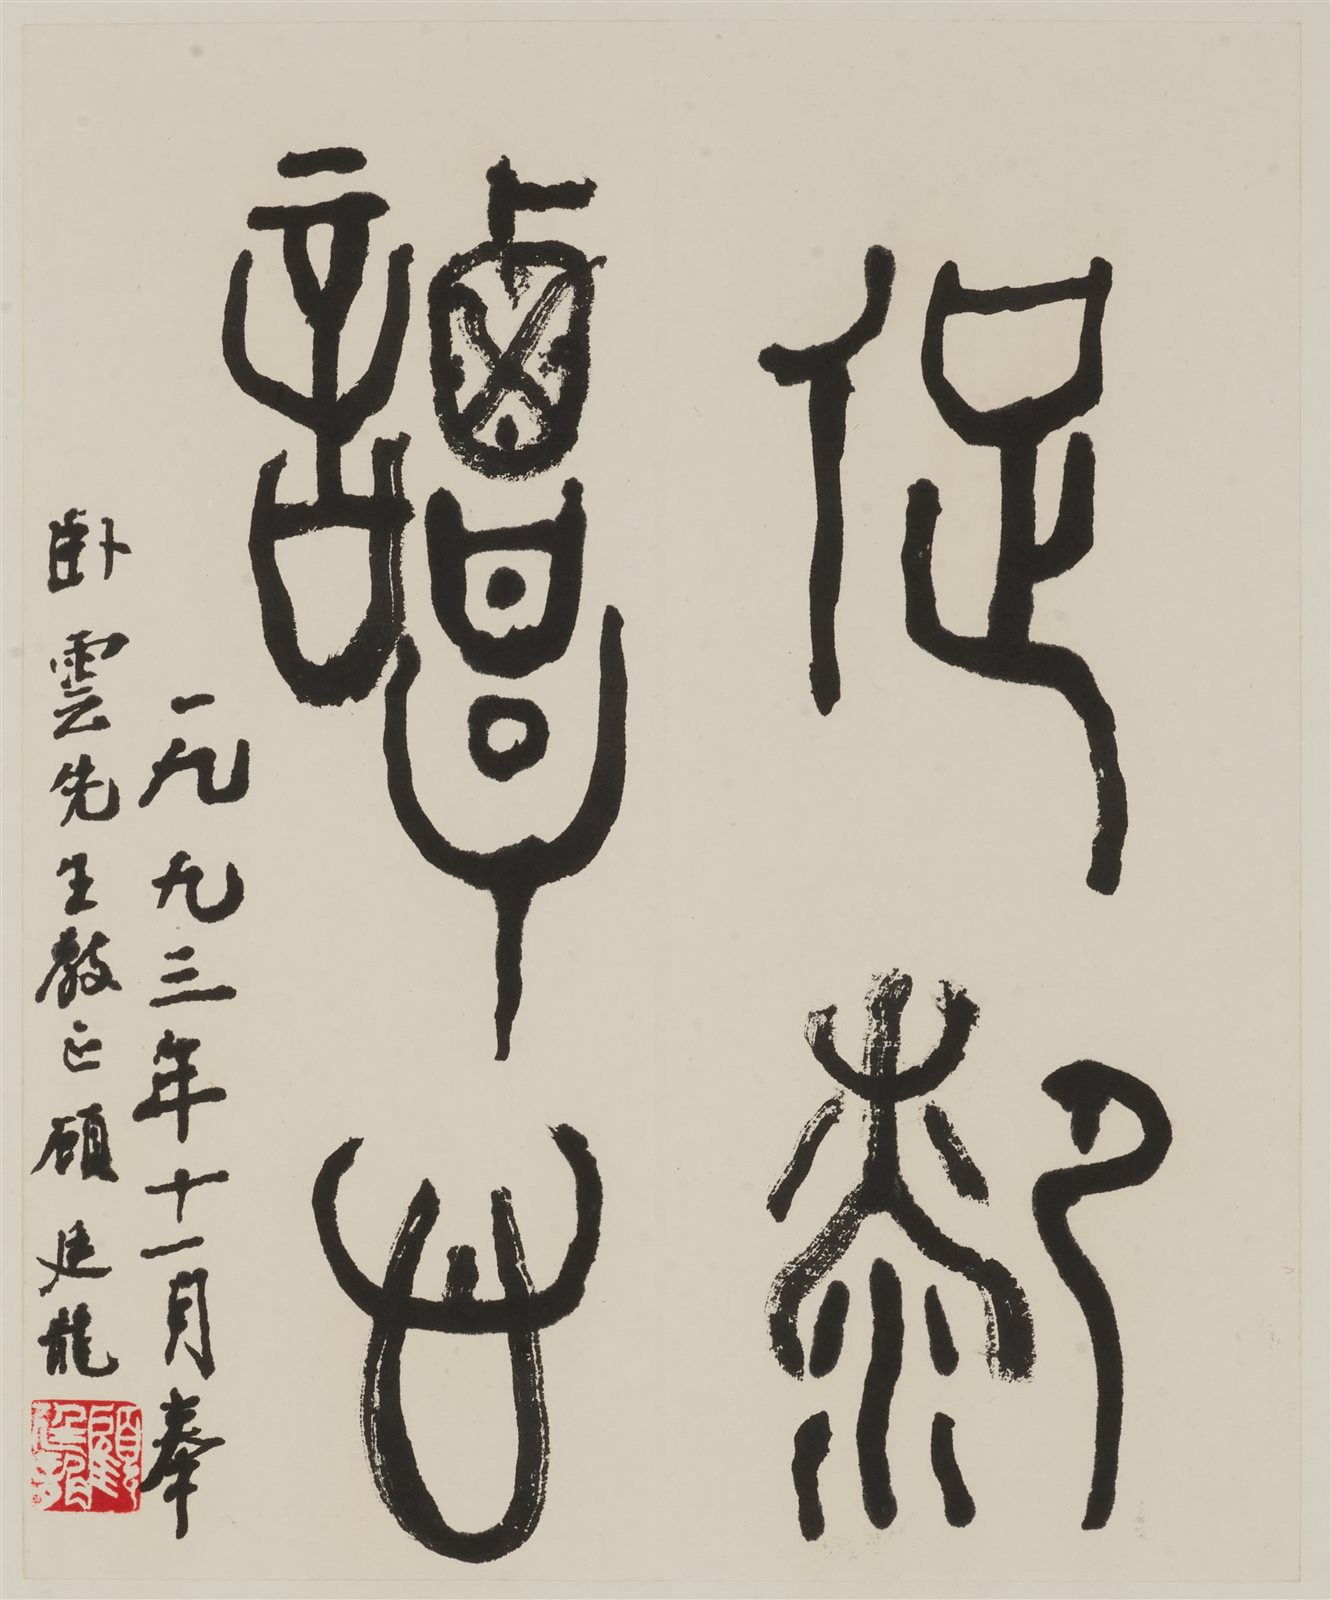 促厀
譚心
一九九三年十一月奉
卧雲先生教正顧廷龍
顧廷龍